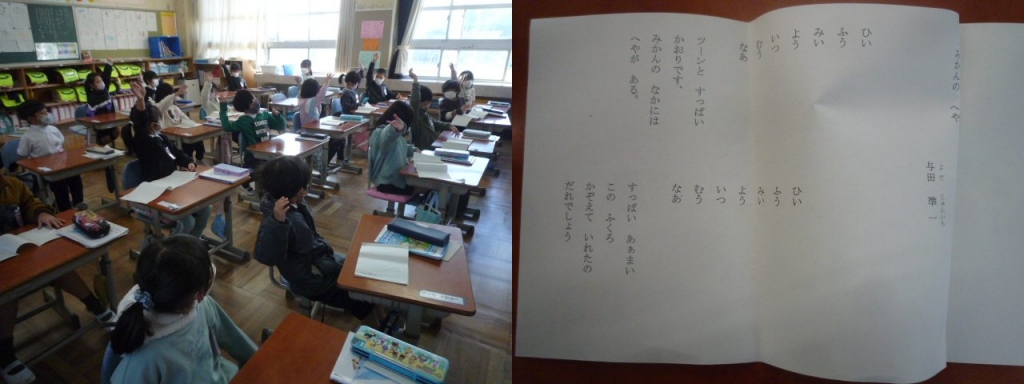 みかんの へや
よだ じゅんいち
与田 準一
ひい
ふう
みい
よう
いつ
むう
なあ
ツーンと すっぱい
かおりです、
みかんの なかには
へやが ある。
ひい
ふう
みい
よう
いつ
むう
なあ
すっぱい あぁまい
この ふくろ
かぞえて いれたの
だれでしょう